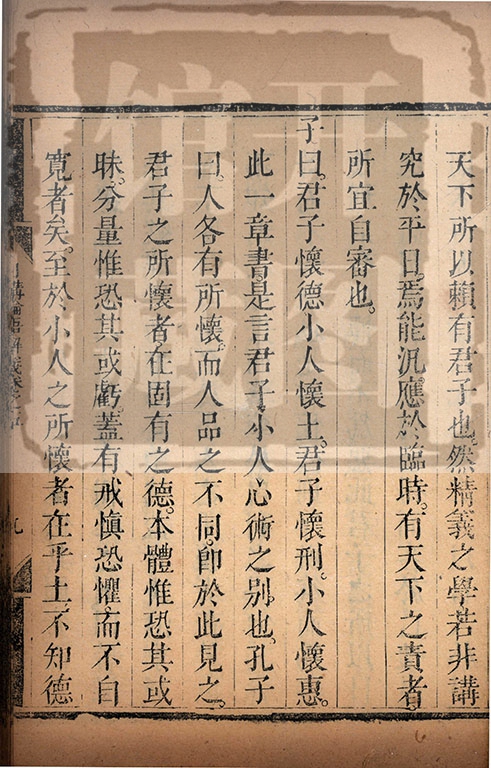 天下所以賴有君子也。然精義之學若非講
究於平日。焉能汎應於臨時。有天下之責者。
所宜自審也。
子曰。君子懷德小人懷土。君子懷刑。小人懷惠。
此一章書是言君子小人心術之别也。孔子
曰。人各有所懷。而人品之不同。卽於此見之。
君子之所懷者在固有之德。本體惟恐其或
昧。分量惟恐其或虧。蓋有戒慎恐懼。而不自
寬者矣。至於小人之所懷者在乎土。不知德